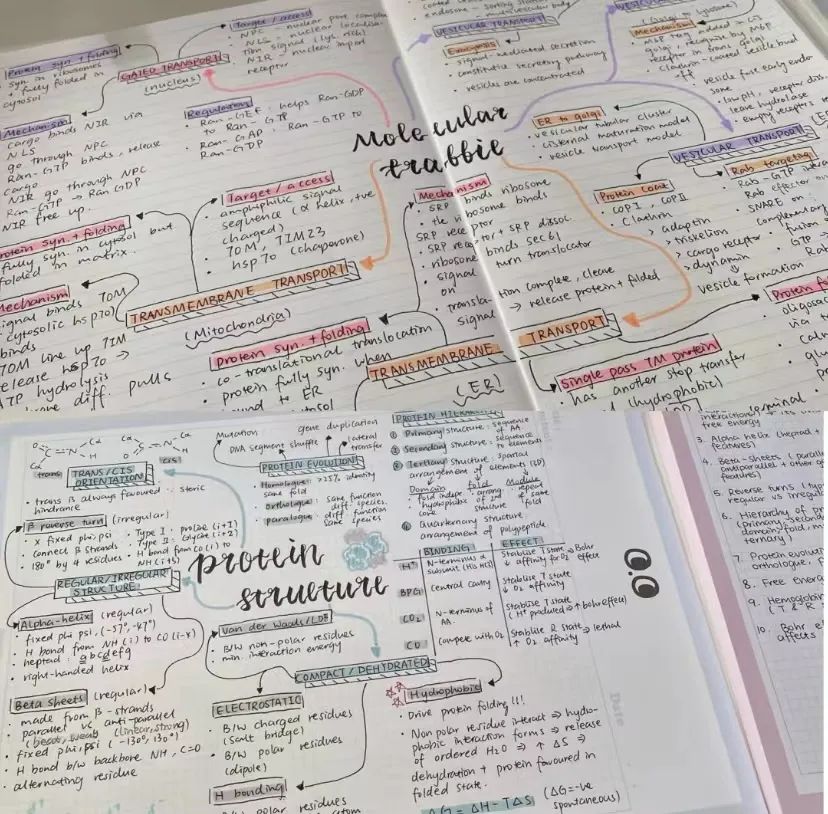 Molecular
trabbic
Protein syn. + folding
syn. in ribosomes
+ fully folded in
cytosol
GATED TRANSPORT
(nucleus)
Target / access
NPC = nuclear pore complex
NLS = nuclear localisa-
tion signal (lys. rich)
NIR = nuclear import
receptor
Mechanism
Cargo binds NIR via
NLS
go through NPC
Ran-GTP binds, release
cargo
NIR go through NPC
Ran-GTP → Ran GDP
NIR free up.
Regulations
Ran-GEF: helps Ran-GDP
to Ran-GTP
Ran-GAP: Ran-GTP to
Ran-GDP
Protein syn. + folding
fully syn. in cytosol but
folded in matrix.
Target / access
amphiphilic signal
sequence (α helix, +ve
charged)
TOM, TIM23
hsp70 (chaperone)
TRANSMEMBRANE TRANSPORT
(Mitochondria)
Mechanism
signal binds TOM
cytosolic hsp70
binds
TOM line up TIM
release hsp70 →
ATP hydrolysis
pulls
protein syn. + folding
co-translational translocation
protein fully syn. when
bound to ER
Mechanism
SRP binds ribosome
ribosome binds
SRP
SRP rece
+ SRP dissoc.
ribosome binds sec61
signal turn translocator
on
transla-
signal
tion complete, cleave
→ release protein + folded
TRANSMEMBRANE TRANSPORT
(ER)
VESICULAR TRANSPORT
Exocytosis
signal-mediated secretion
constitutive secretory pathway
vesicles are concentrated
endosome = sorting station
multivesicular body
(Golgi → lysosome)
Mechanism
M6P tag added in cis
golgi, recognise by M6P
receptor in trans golgi
clathrin-coated vesicle bud
off
vesicle fuse early endo
some
low pH, receptor diss
leave hydrolase
empty receptors
ER to golgi
vesicular tubular cluster
cisternal maturation model
vesicle transport model
VESICULAR TRANSPORT
Protein coat
COP I, COP II
Clathrin
> adaptin
> triskelion
> cargo receptor
> dynamin
vesicle formation
Rab targeting
Rab-GTP
Rab effector
SNARE on
complementary
fusion
GTP →
Rab
Single pass TM protein
has another stop transfer
(hydrophobic)
oligosac
via
protein
structure
trans
cis
TRANS/CIS
ORIENTATION
trans is always favoured ∵ steric
hindrance
β reverse turn (irregular)
x fixed phi, psi
connect β strands
180° by 4 residues
Type I : proline (i+1)
Type II : Glycine (i+2)
H bond from CO (i) to
NH (i+3)
REGULAR/IRREGULAR
STRUCTURE
Alpha-helix (regular)
fixed phi psi, (-57°, -47°)
H bond from NH (i) to CO (i-4)
heptad : abcdefg
right-handed helix
Beta sheets (regular)
made from β-strands
parallel vs anti-parallel
(bent, weak) (linear, strong)
fixed phi, psi (-130°, 130°)
H bond b/w backbone NH, C=O
alternating residue
Mutation
DNA segment shuffle
gene duplication
lateral
transfer
PROTEIN EVOLUTION
Homologue: >25% identity
same fold
orthologue: same function
diff species
paralogue: diff function
same species
PROTEIN HIERARCHY
① Primary structure : sequence
of AA
② Secondary structure : sequence
to elements
③ Tertiary structure : spatial
arrangement of elements (3D)
Domain
fold indep.
core
fold
arrang.
of 2nd
structure
Module
repeat
of same
fold
④ Quarternary structure :
arrangement of polypeptide
BINDING
EFFECT
H⁺
N-terminus α
subunit (His HC3)
Stabilise T state → Bohr
↓ affinity for O2 effect
BPG
Central cavity
Stabilise T state
↓ O2 affinity
CO2
N-terminus of
AA
Stabilise T state
(H⁺ produced → bohr effect)
CO
Compete with O2
Stabilise R state → lethal
↑ O2 affinity
Van der Waals / LDF
B/W non-polar residues
min. interaction energy
COMPACT / DEHYDRATED
ELECTROSTATIC
B/W charged residues
(salt bridge)
B/W polar residues
(dipole)
H bonding
polar residues
Hydrophobic
Drive protein folding !!!
Non polar residue interact → hydro-
phobic interaction forms → release
of ordered H2O → ↑ ΔS →
dehydration + protein favoured in
folded state.
ΔG = ΔH - TΔS
(ΔG = -ve
spontaneous)
Date
free energy
3. Alpha helix (heptad +
features)
4. Beta-sheets (parallel
antiparallel + other
features)
5. Reverse turns (type
regular vs irregular
6. Hierarchy of
(primary, secondary
domain, fold,
ternary)
7. Protein evolution
orthologue,
8. Free Energ
9. Hemoglobin
(T & R
10. Bohr
affects